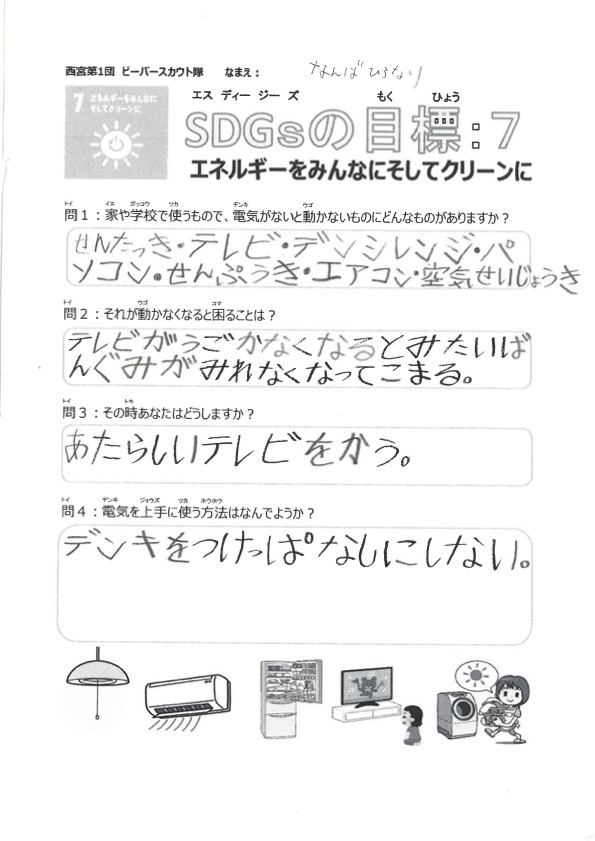 西宮第1団 ビーバースカウト隊 なまえ：なんばひろなり
7 エネルギーをみんなに
そしてクリーンに
エス ディー ジー ズ もく ひょう
SDGsの目標:7
エネルギーをみんなにそしてクリーンに
トイ イエ ガッコウ ツカ デンキ ウゴ
問1：家や学校で使うもので、電気がないと動かないものにどんなものがありますか？
せんたっき・テレビ・デンシレンジ・パ
ソコン・せんぷうき・エアコン・空気せいじょうき
トイ ウゴ コマ
問2：それが動かなくなると困ることは？
テレビがうごかなくなるとみたいば
んぐみがみれなくなってこまる。
トイ トキ
問3：その時あなたはどうしますか？
あたらしいテレビをかう。
トイ デンキ ジョウズ ツカ ホウホウ
問4：電気を上手に使う方法はなんでようか？
デンキをつけっぱなしにしない。